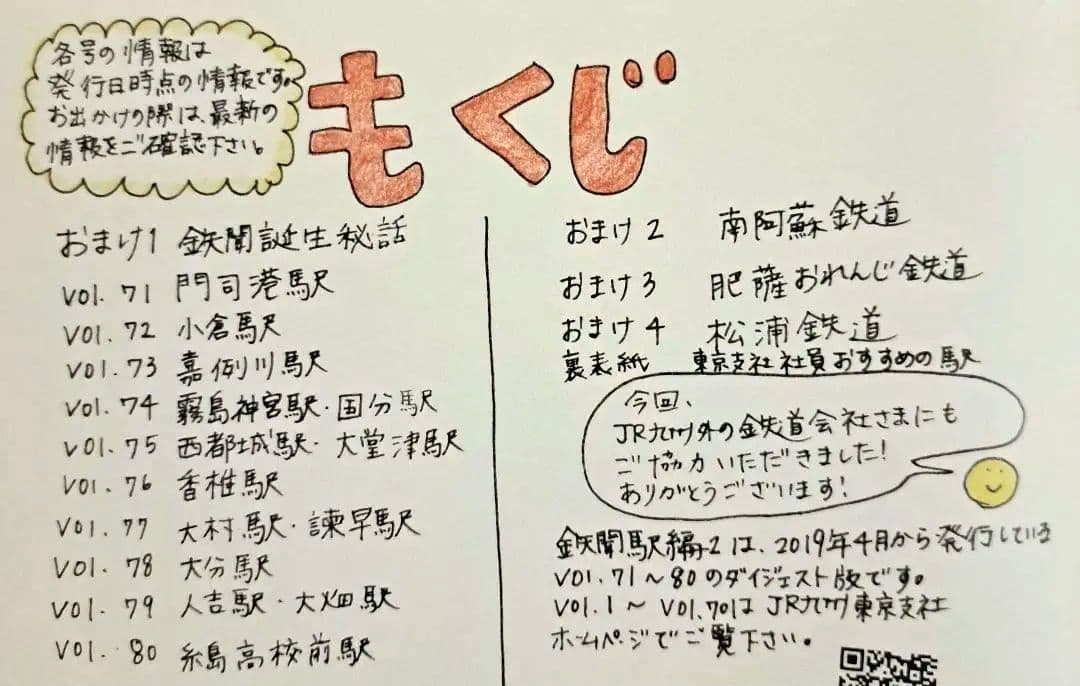 各号の情報は
発行日時点の情報です。
お出かけの際は、最新の
情報をご確認下さい。
もくじ
おまけ1 鉄聞誕生秘話
VOl. 71 門司港駅
VOl. 72 小倉駅
VOl. 73 嘉例川駅
VOl. 74 霧島神宮駅・国分駅
VOl. 75 西都城駅・大堂津駅
VOl. 76 香椎駅
VOl. 77 大村駅・諫早駅
VOl. 78 大分駅
VOl. 79 人吉駅・大畑駅
VOl. 80 糸島高校前駅
おまけ2 南阿蘇鉄道
おまけ3 肥薩おれんじ鉄道
おまけ4 松浦鉄道
裏表紙 東京支社社員おすすめの駅
今回、
JR九州外の鉄道会社さまにも
ご協力いただきました!
ありがとうございます!
鉄聞駅編2は、2019年4月から発行している
VOl.71~80のダイジェスト版です。
VOl.1~VOl.70はJR九州東京支社
ホームページでご覧下さい。